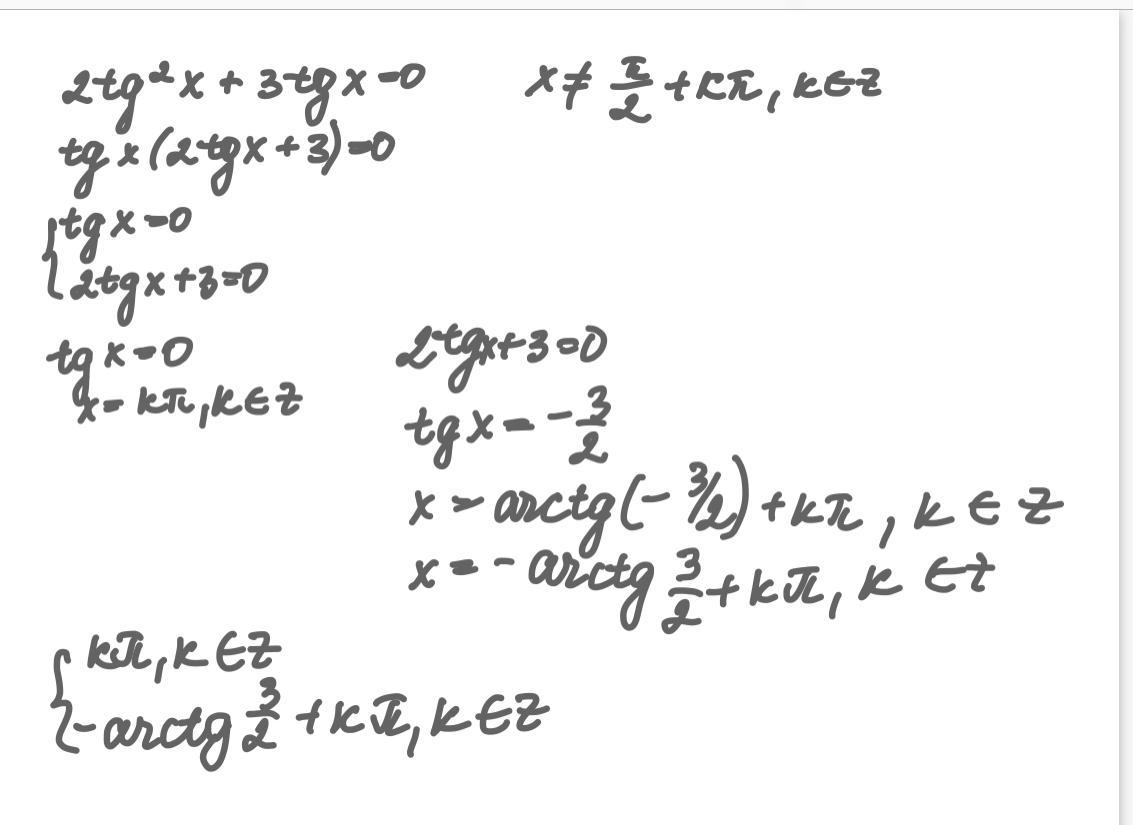 2tg²x + 3tgx=0 x≠ π/2 + kπ, k∈Z
tg x(2tgx+3)=0
{tgx=0
{2tgx+3=0
tg x=0 2tgx+3=0
x= kπ, k∈Z
tgx=-3/2
x=arctg(-3/2)+kπ, k∈Z
x=-arctg 3/2+kπ, k∈Z
{kπ, k∈Z
{-arctg 3/2+kπ, k∈Z